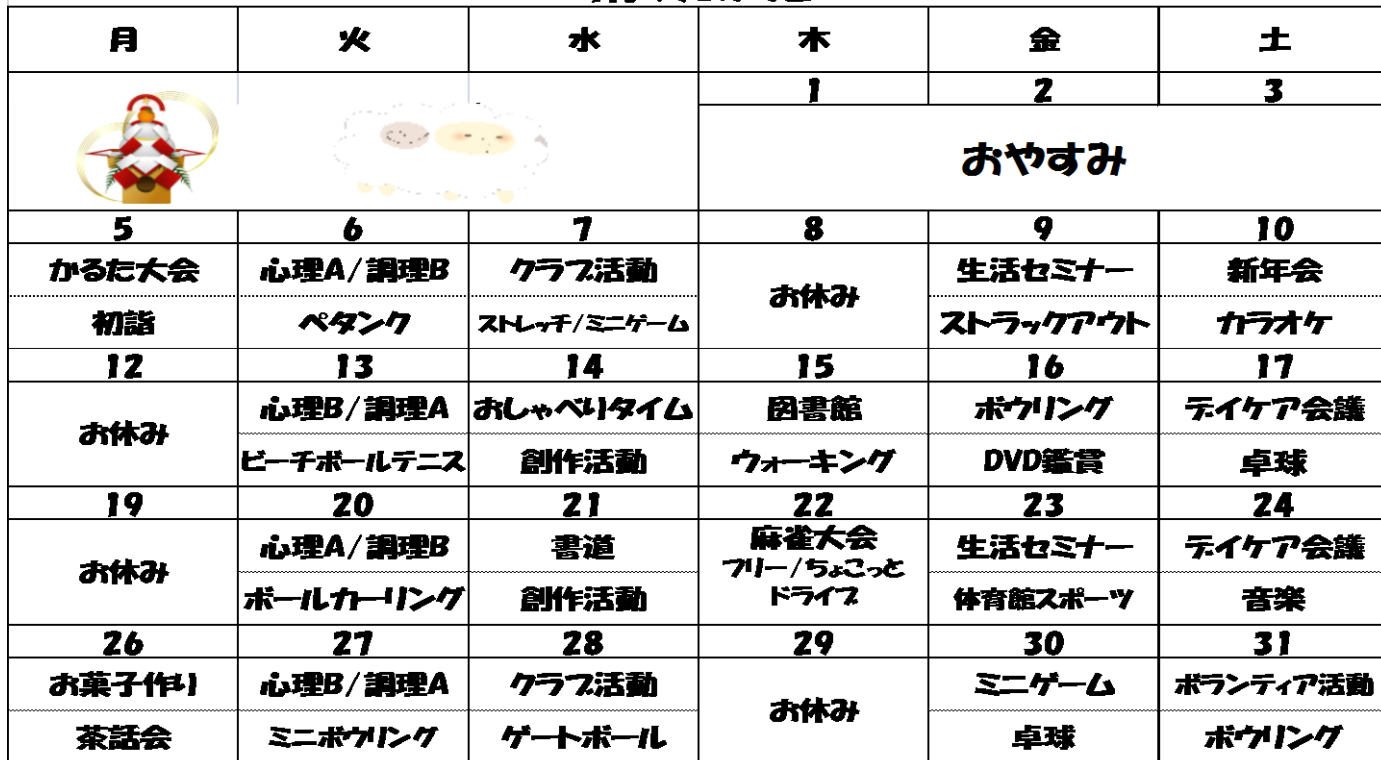 月 火 水 木 金 土
1 2 3
おやすみ
5 6 7 8 9 10
かるた大会 心理A/調理B クラブ活動 お休み 生活セミナー 新年会
初詣 ペタンク ストレッチ/ミニゲーム ストラックアウト カラオケ
12 13 14 15 16 17
お休み 心理B/調理A おしゃべりタイム 図書館 ボウリング デイケア会議
ビーチボールテニス 創作活動 ウォーキング DVD鑑賞 卓球
19 20 21 22 23 24
お休み 心理A/調理B 書道 麻雀大会 生活セミナー デイケア会議
フリー/ちょこっと
ボールカーリング 創作活動 ドライブ 体育館スポーツ 音楽
26 27 28 29 30 31
お菓子作り 心理B/調理A クラブ活動 お休み ミニゲーム ボランティア活動
茶話会 ミニボウリング ゲートボール 卓球 ボウリング